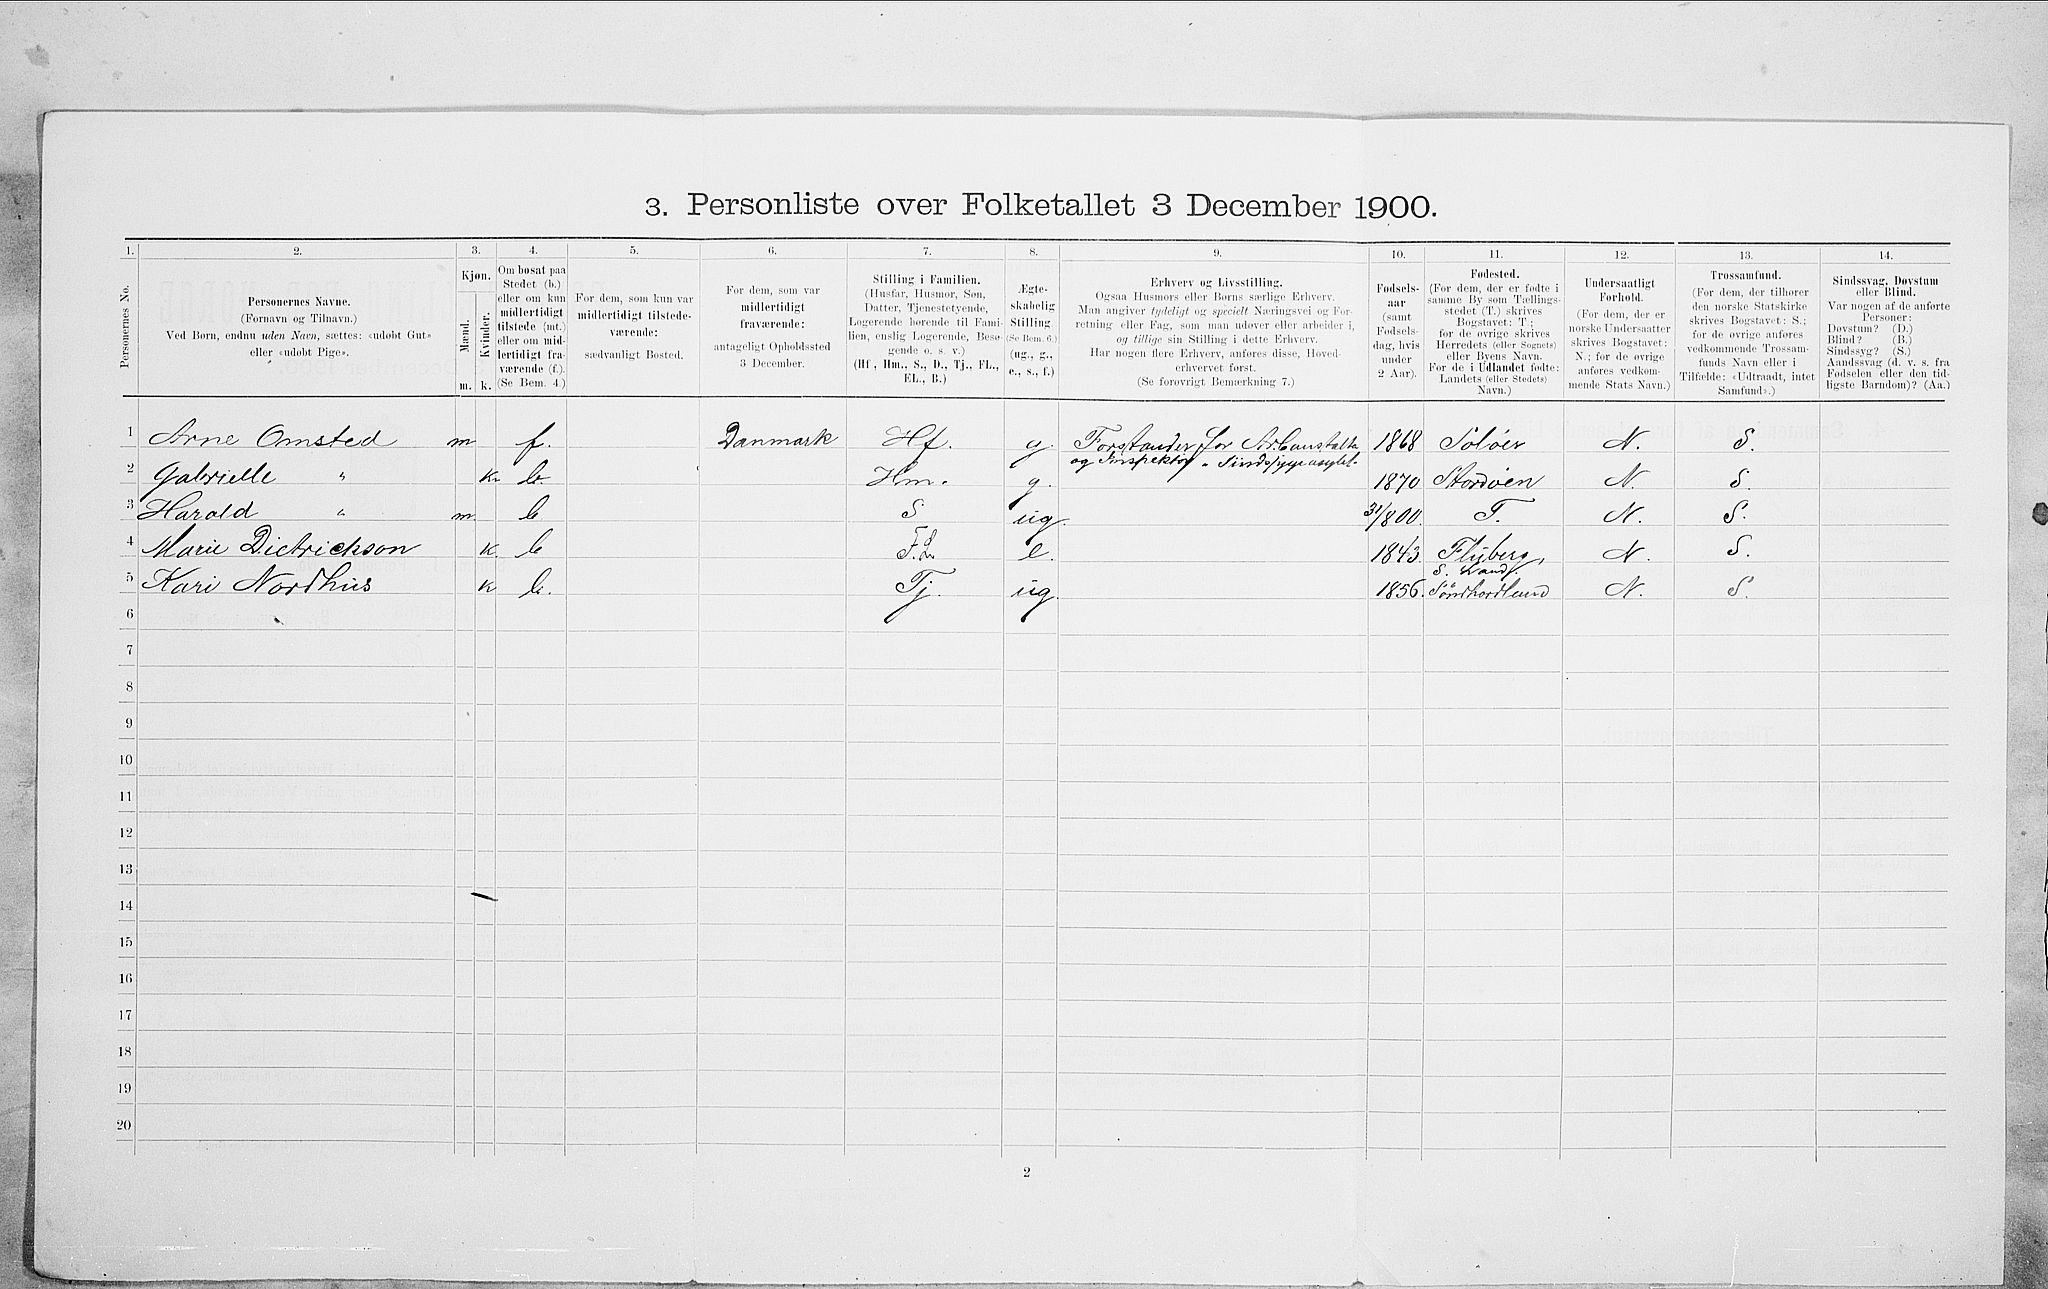 3. Personliste over Folketallet 3 December 1900.
1. 2. 3. 4. 5. 6. 7. 8. 9. 10. 11. 12. 13. 14.
Personernes No.
Personernes Navne.
(Fornavn og Tilnavn.)
Ved Børn, endnu uden Navn, sættes: «udøbt Gut»
eller «udøbt Pige».
Kjøn.
Mænd.
Kvinder.
m. k.
Om bosat paa
Stedet (b.)
eller om kun
midlertidigt
tilstede (mt.)
eller om mid-
lertidigt fra-
værende (f.).
(Se Bem. 4.)
For dem, som kun var
midlertidigt tilstede-
værende:
sædvanligt Bosted.
For dem, som var
midlertidigt
fraværende:
antageligt Opholdssted
3 December.
Stilling i Familien.
(Husfar, Husmor, Søn,
Datter, Tjenestetyende,
Logerende hørende til Fami-
lien, enslig Logerende, Besø-
gende o. s. v.)
(Hf., Hm., S., D., Tj., FL.,
EL., B.)
Ægte-
skabelig
Stilling
(Se Bem. 6.)
(ug., g.,
e., s., f.)
Erhverv og Livsstilling.
Ogsaa Husmors eller Børns særlige Erhverv.
Man angiver tydeligt og specielt Næringsvei og For-
retning eller Fag, som man udøver eller arbeider i,
og tillige sin Stilling i dette Erhverv.
Har nogen flere Erhverv, anføres disse, Hoved-
erhvervet først.
(Se forøvrigt Bemærkning 7.)
Fødsels-
aar
(samt
Fødsels-
dag, hvis
under
2 Aar).
Fødested.
(For dem, der er fødte i
samme By som Tællings-
stedet (T.) skrives
Bogstavet: T.;
for de øvrige skrives
Herredets (eller Sognets)
eller Byens Navn.
For de i Udlandet fødte:
Landets (eller Stedets)
Navn.)
Undersaatligt
Forhold.
(For dem, der er
norske Undersaatter
skrives Bogstavet:
N.; for de øvrige
anføres vedkom-
mende Stats Navn.)
Trossamfund.
(For dem, der tilhører
den norske Statskirke
skrives Bogstavet: S.;
for de øvrige anføres
vedkommende Trossam-
funds Navn eller i
Tilfælde: «Udtraadt, intet
Samfund».)
Sindssvag, Døvstum
eller Blind.
Var nogen af de anførte
Personer:
Døvstum? (D.)
Blind? (B.)
Sindssyg? (S.)
Aandssvag (d. v. s. fra
Fødselen eller den tid-
ligste Barndom)? (Aa.)
1 Arne Omsted m f. Danmark Hf. g. Forstander for Arb.anstalta 1868 Soløer N. S.
og Inspektør " Sindssygeasylet.
2 Gabrielle " k. b. Hm. g. 1870 Stordøen N. S.
3 Harold " m. b S ug. 31/8 00. T. N. S.
4 Marie Dietrichson k. b F.L. e. 1843. Fluberg, N. S.
S. Land.
5 Kari Nordhus k b. Tj. ug. 1856. Søndhordlund N. S.
6
7
8
9
10
11
12
13
14
15
16
17
18
19
20
2